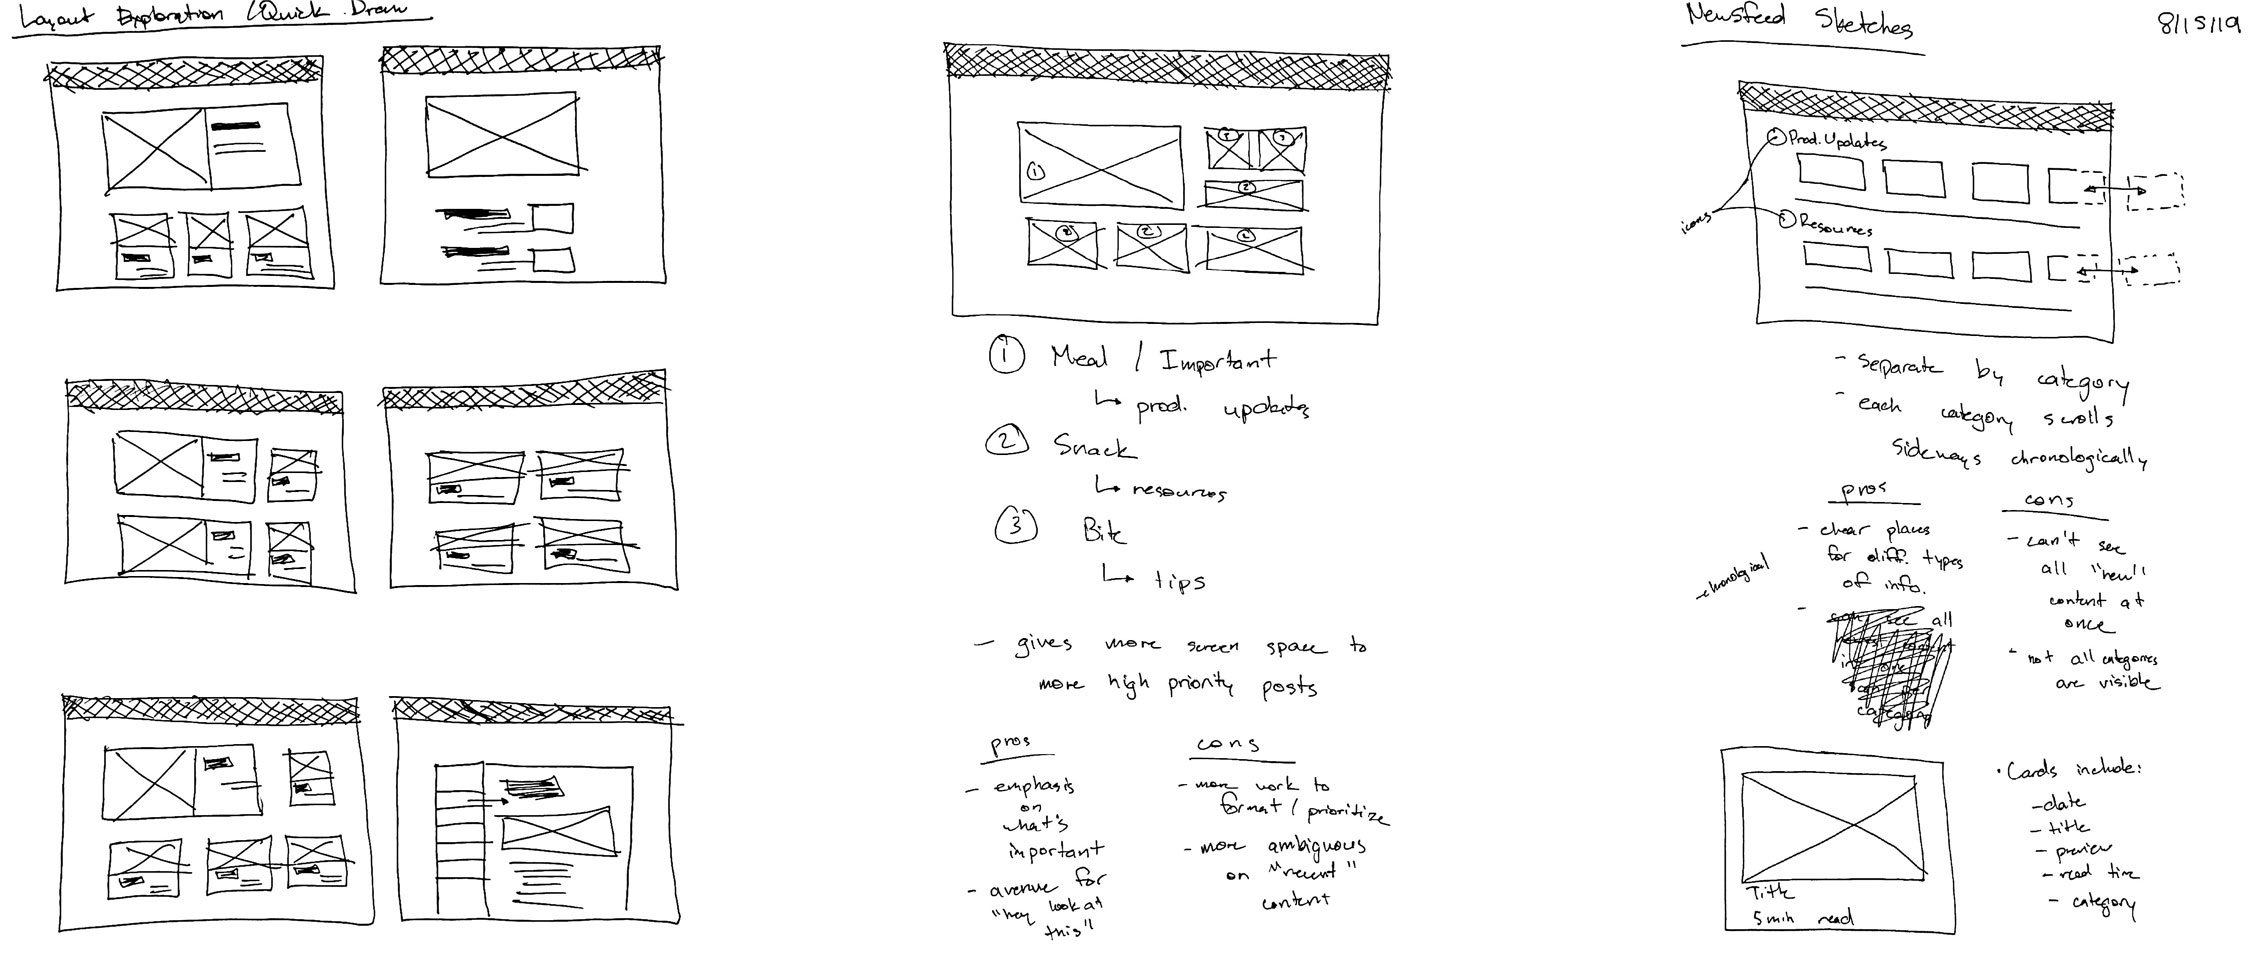 Layout Exploration / Quick Draw
1
3
3
2
2
2
2
1 Meal / Important
↳ prod. updates
2 Snack
↳ resources
3 Bite
↳ tips
- gives more screen space to
more high priority posts
pros
- emphasis
on
what's
important
- avenue for
"hey look at
this"
cons
- more work to
format / prioritize
- more ambiguous
on "recent"
content
Newsfeed Sketches
8/15/19
Prod. Updates
icons
Resources
- separate by category
- each category scrolls
sideways chronologically
pros
- clear places
for diff. types
of info.
- see all
category
- chronological
cons
- can't see
all "new"
content at
once
- not all categories
are visible
Title
5 min read
• Cards include:
- date
- title
- preview
- read time
- category